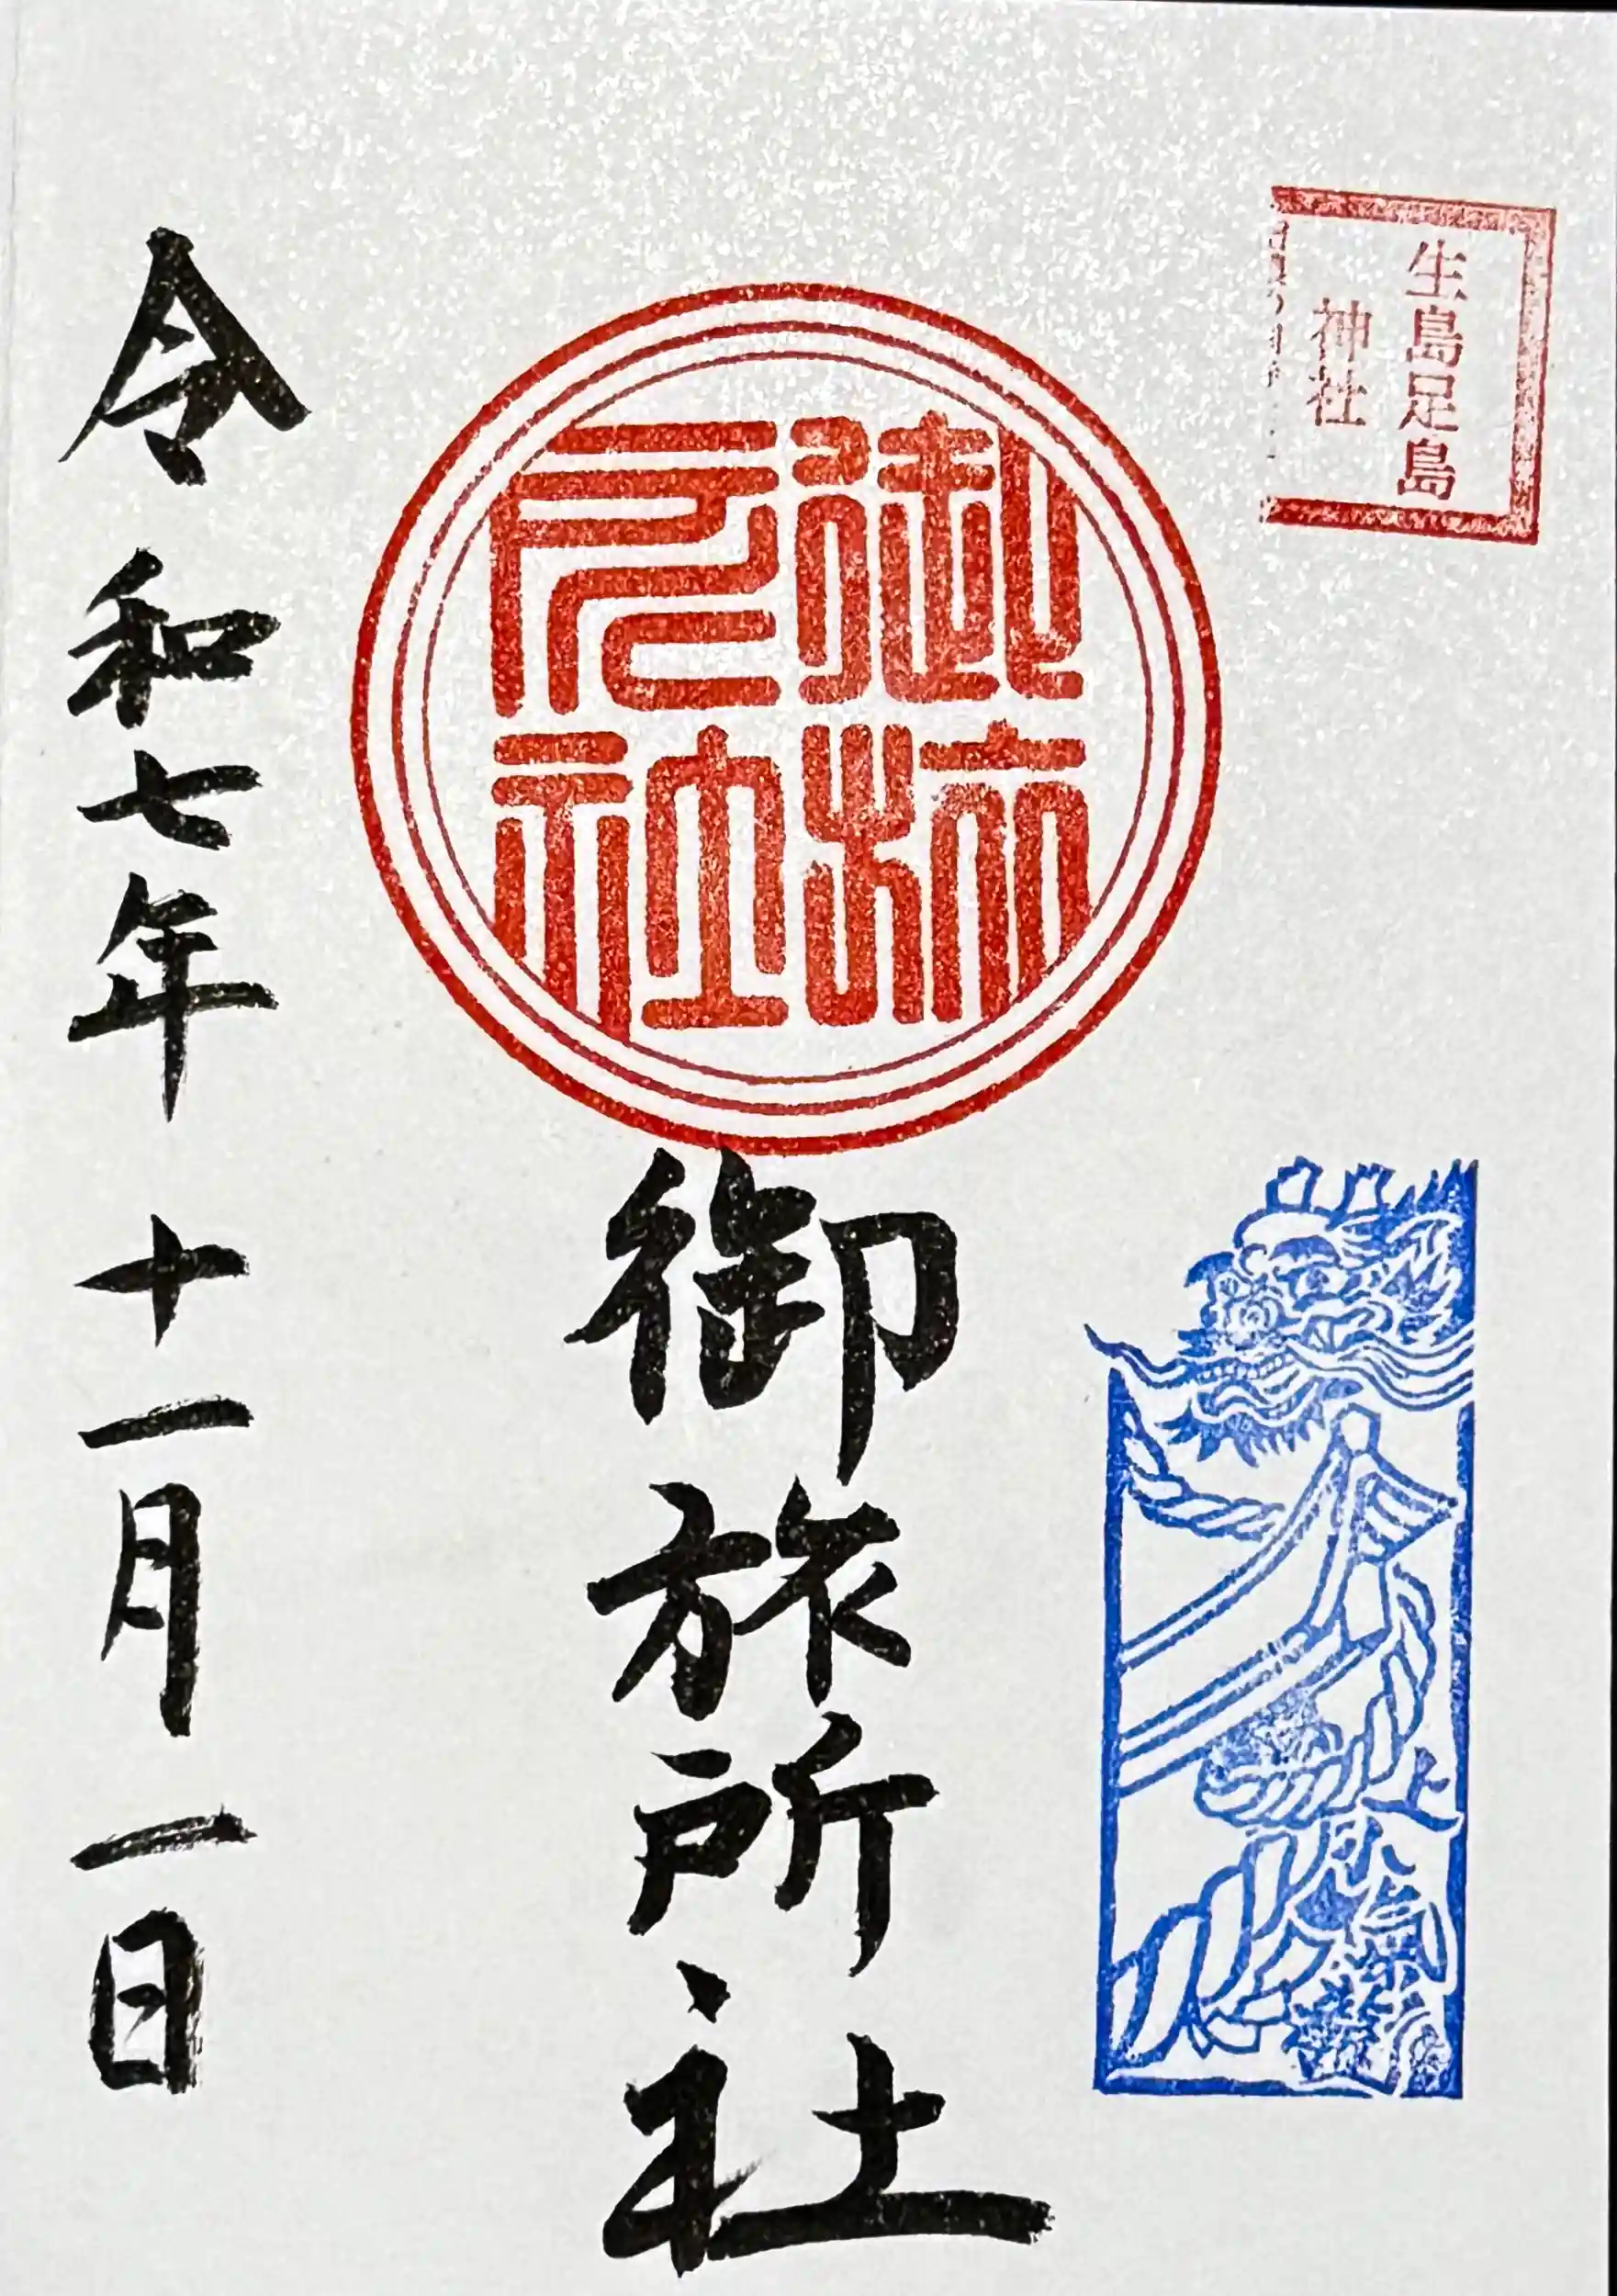 生島足島
神社
御旅
所社
御旅所社
令和七年十一月一日
上水